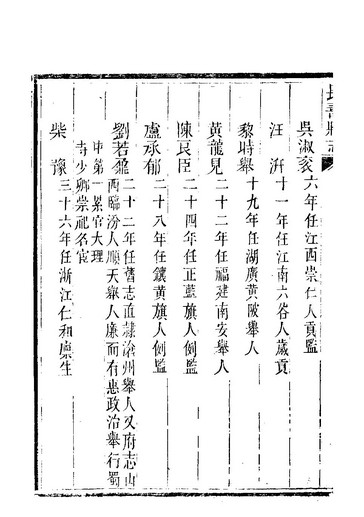 長壽縣志
吳淑亥六年任江西崇仁人貢監
汪漋十一年任江南六合人歲貢
黎時舉十九年任湖廣黃陂舉人
黃龍見二十二年任福建南安舉人
陳良臣二十四年任正藍旗人例監
盧承郁二十八年任鑲黃旗人例監
劉若鼐二十二年任舊志直隸滄州舉人又府志山
西臨汾人順天舉人廉而有惠政治舉行蜀
中第一累官大理
寺少卿崇祀名宦
柴豫三十六年任浙江仁和廩生